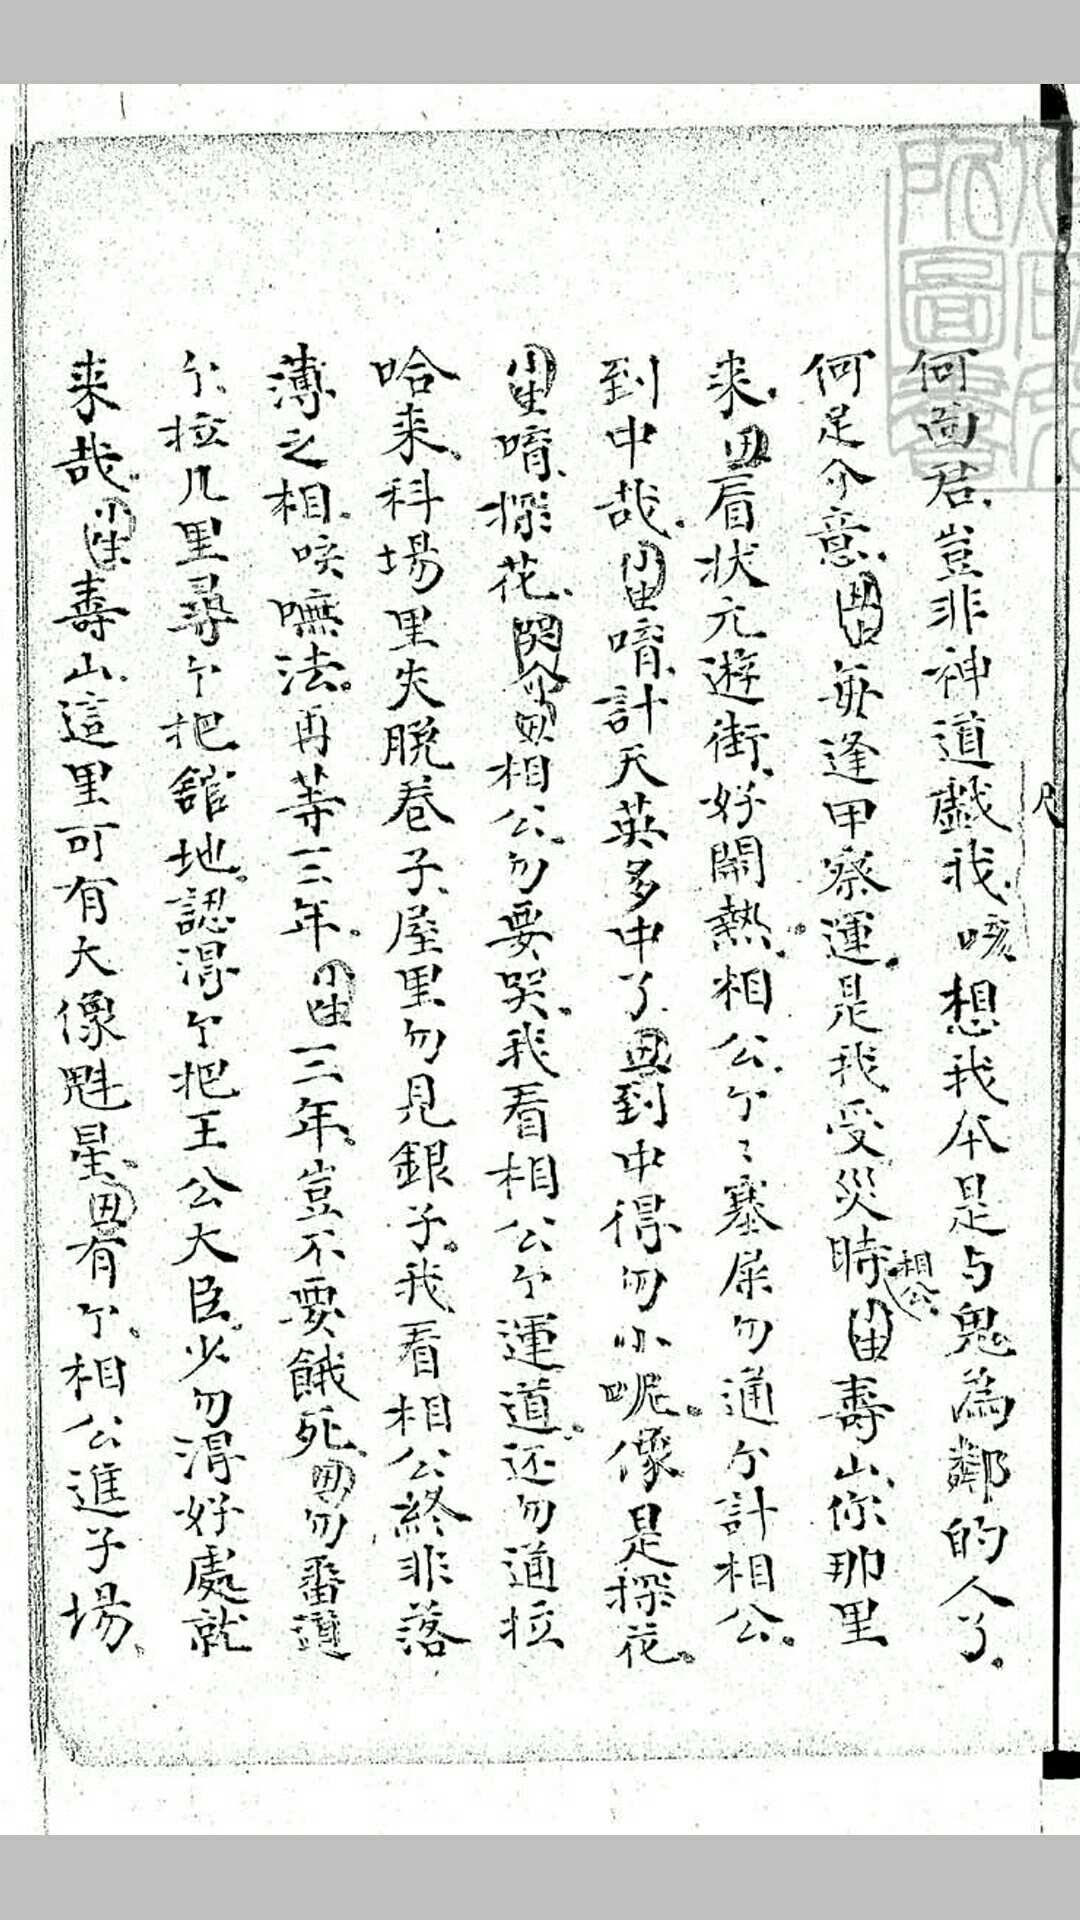 何面君豈非神道戲我咳想我本是与鬼為鄰的人了
何足介意 每逢甲察運是我受災時 小生 壽山你那里
相公
来 丑 看狀元遊街好鬧熱相公个〻塞屎勿通个計相公
到中哉 小生 唷計天英多中了 丑 到中得勿小呢像是探花
小生 唷探花 哭介 丑 相公勿要哭我看相公个運道还勿通拉
哈来科場里失脫卷子屋里勿見銀子我看相公終非落
薄之相咳嘸法再等三年 小生 三年豈不要餓死 丑 勿番道
个拉几里尋个把舘地認得个把王公大臣少勿得好處就
来哉 小生 壽山這里可有大像魁星 丑 有个相公進子場